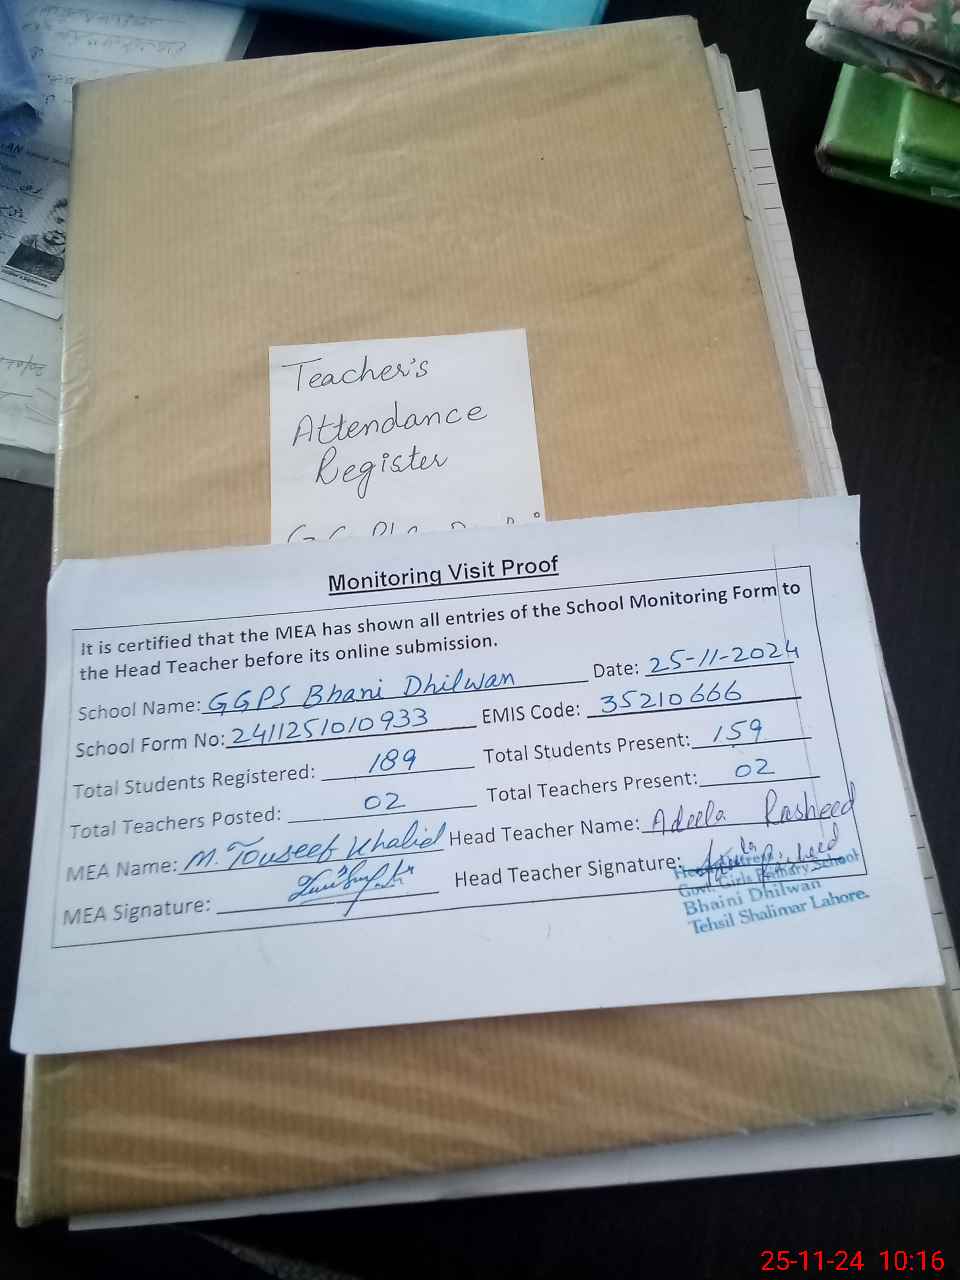 Teacher's
Attendance
Register
Monitoring Visit Proof
It is certified that the MEA has shown all entries of the School Monitoring Form to
the Head Teacher before its online submission.
School Name: GGPS Bhani Dhilwan Date: 25-11-2024
School Form No: 2411251010933 EMIS Code: 35210666
Total Students Registered: 189 Total Students Present: 159
Total Teachers Posted: 02 Total Teachers Present: 02
MEA Name: M. Touseef Khalid Head Teacher Name: Adeela Rasheed
MEA Signature: Head Teacher Signature:
Govt. Girls Primary School
Bhaini Dhilwan
Tehsil Shalimar Lahore.
25-11-24 10:16